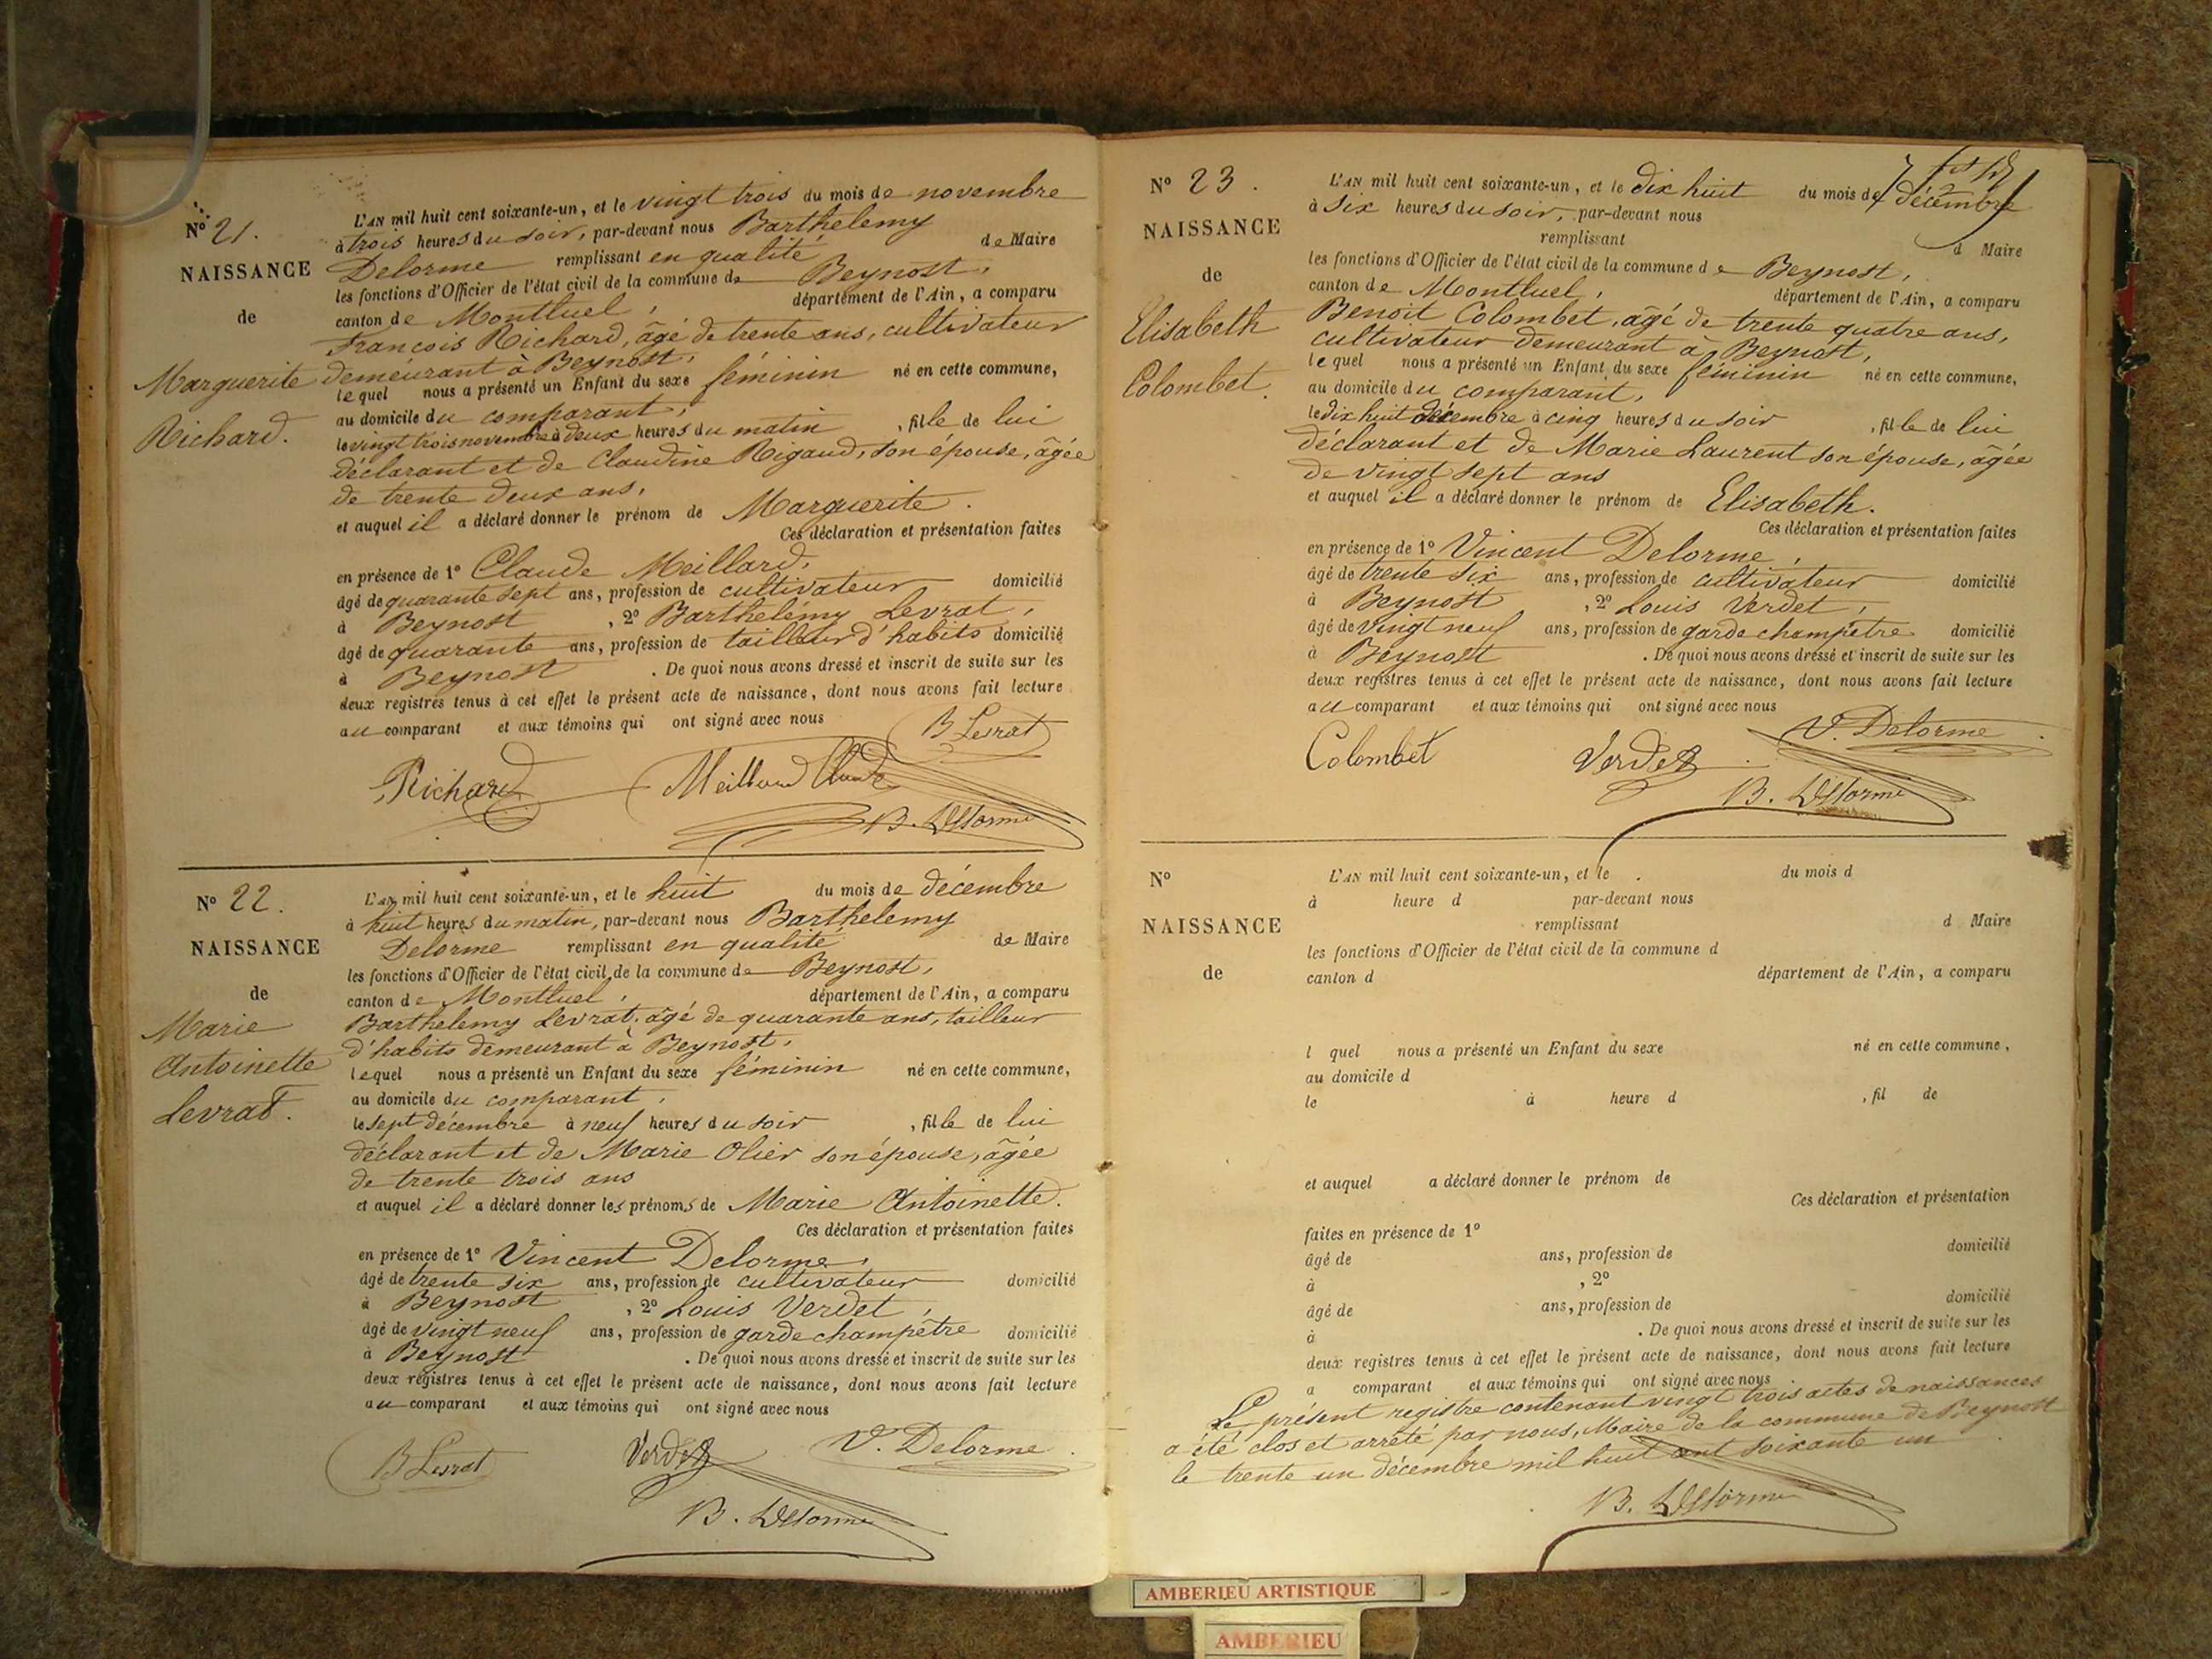 N° 21.
NAISSANCE
de
Marguerite
Richard.
L'AN mil huit cent soixante-un, et le vingt trois du mois de novembre
à trois heures du soir, par-devant nous Barthelemy
Delorme remplissant en qualité de Maire
les fonctions d'Officier de l'état civil de la commune de Beynost,
canton de Montluel, département de l'Ain, a comparu
François Richard, âgé de trente ans, cultivateur
demeurant à Beynost,
lequel nous a présenté un Enfant du sexe féminin né en cette commune,
au domicile du comparant,
le vingt trois novembre à deux heures du matin, fille de lui
déclarant et de Claudine Rigaud, son épouse, âgée
de trente deux ans,
et auquel il a déclaré donner le prénom de Marguerite.
Ces déclaration et présentation faites
en présence de 1° Claude Meillard,
âgé de quarante sept ans, profession de cultivateur domicilié
à Beynost, 2° Barthelémy Levrat,
âgé de quarante ans, profession de tailleur d'habits domicilié
à Beynost. De quoi nous avons dressé et inscrit de suite sur les
deux registres tenus à cet effet le présent acte de naissance, dont nous avons fait lecture
au comparant et aux témoins qui ont signé avec nous
B Levrat
Richard Meillard Claude
B. Delorme
N° 22.
NAISSANCE
de
Marie
Antoinette
Levrat.
L'AN mil huit cent soixante-un, et le huit du mois de décembre
à huit heures du matin, par-devant nous Barthelemy
Delorme remplissant en qualité de Maire
les fonctions d'Officier de l'état civil de la commune de Beynost,
canton de Montluel, département de l'Ain, a comparu
Barthelemy Levrat, âgé de quarante ans, tailleur
d'habits demeurant à Beynost,
lequel nous a présenté un Enfant du sexe féminin né en cette commune,
au domicile du comparant,
le sept décembre à neuf heures du soir, fille de lui
déclarant et de Marie Olier son épouse, âgée
de trente trois ans
et auquel il a déclaré donner les prénoms de Marie Antoinette.
Ces déclaration et présentation faites
en présence de 1° Vincent Delorme,
âgé de trente six ans, profession de cultivateur domicilié
à Beynost, 2° Louis Verdet,
âgé de vingt neuf ans, profession de garde champêtre domicilié
à Beynost. De quoi nous avons dressé et inscrit de suite sur les
deux registres tenus à cet effet le présent acte de naissance, dont nous avons fait lecture
au comparant et aux témoins qui ont signé avec nous
B Levrat Verdet V. Delorme
B. Delorme
N° 23.
NAISSANCE
de
Elisabeth
Colombet.
L'AN mil huit cent soixante-un, et le dix huit du mois de décembre
à six heures du soir, par-devant nous
remplissant d Maire
les fonctions d'Officier de l'état civil de la commune de Beynost,
canton de Montluel, département de l'Ain, a comparu
Benoit Colombet, âgé de trente quatre ans,
cultivateur demeurant à Beynost,
lequel nous a présenté un Enfant du sexe féminin né en cette commune,
au domicile du comparant,
le dix huit décembre à cinq heures du soir, fille de lui
déclarant et de Marie Laurent son épouse, âgée
de vingt sept ans
et auquel il a déclaré donner le prénom de Elisabeth.
Ces déclaration et présentation faites
en présence de 1° Vincent Delorme,
âgé de trente six ans, profession de cultivateur domicilié
à Beynost, 2° Louis Verdet,
âgé de vingt neuf ans, profession de garde champêtre domicilié
à Beynost. De quoi nous avons dressé et inscrit de suite sur les
deux registres tenus à cet effet le présent acte de naissance, dont nous avons fait lecture
au comparant et aux témoins qui ont signé avec nous
V. Delorme
Colombet Verdet
B. Delorme
N°
NAISSANCE
de
L'AN mil huit cent soixante-un, et le du mois d
à heure d par-devant nous
remplissant d Maire
les fonctions d'Officier de l'état civil de la commune d
canton d département de l'Ain, a comparu
l quel nous a présenté un Enfant du sexe né en cette commune,
au domicile d
le à heure d , fil de
et auquel a déclaré donner le prénom de
Ces déclaration et présentation
faites en présence de 1°
âgé de ans, profession de domicilié
à , 2°
âgé de ans, profession de domicilié
à . De quoi nous avons dressé et inscrit de suite sur les
deux registres tenus à cet effet le présent acte de naissance, dont nous avons fait lecture
a comparant et aux témoins qui ont signé avec nous
Le présent registre contenant vingt trois actes de naissances
a été clos et arrêté par nous, Maire de la commune de Beynost
le trente un décembre mil huit cent soixante un
B. Delorme
AMBERIEU ARTISTIQUE
AMBERIEU